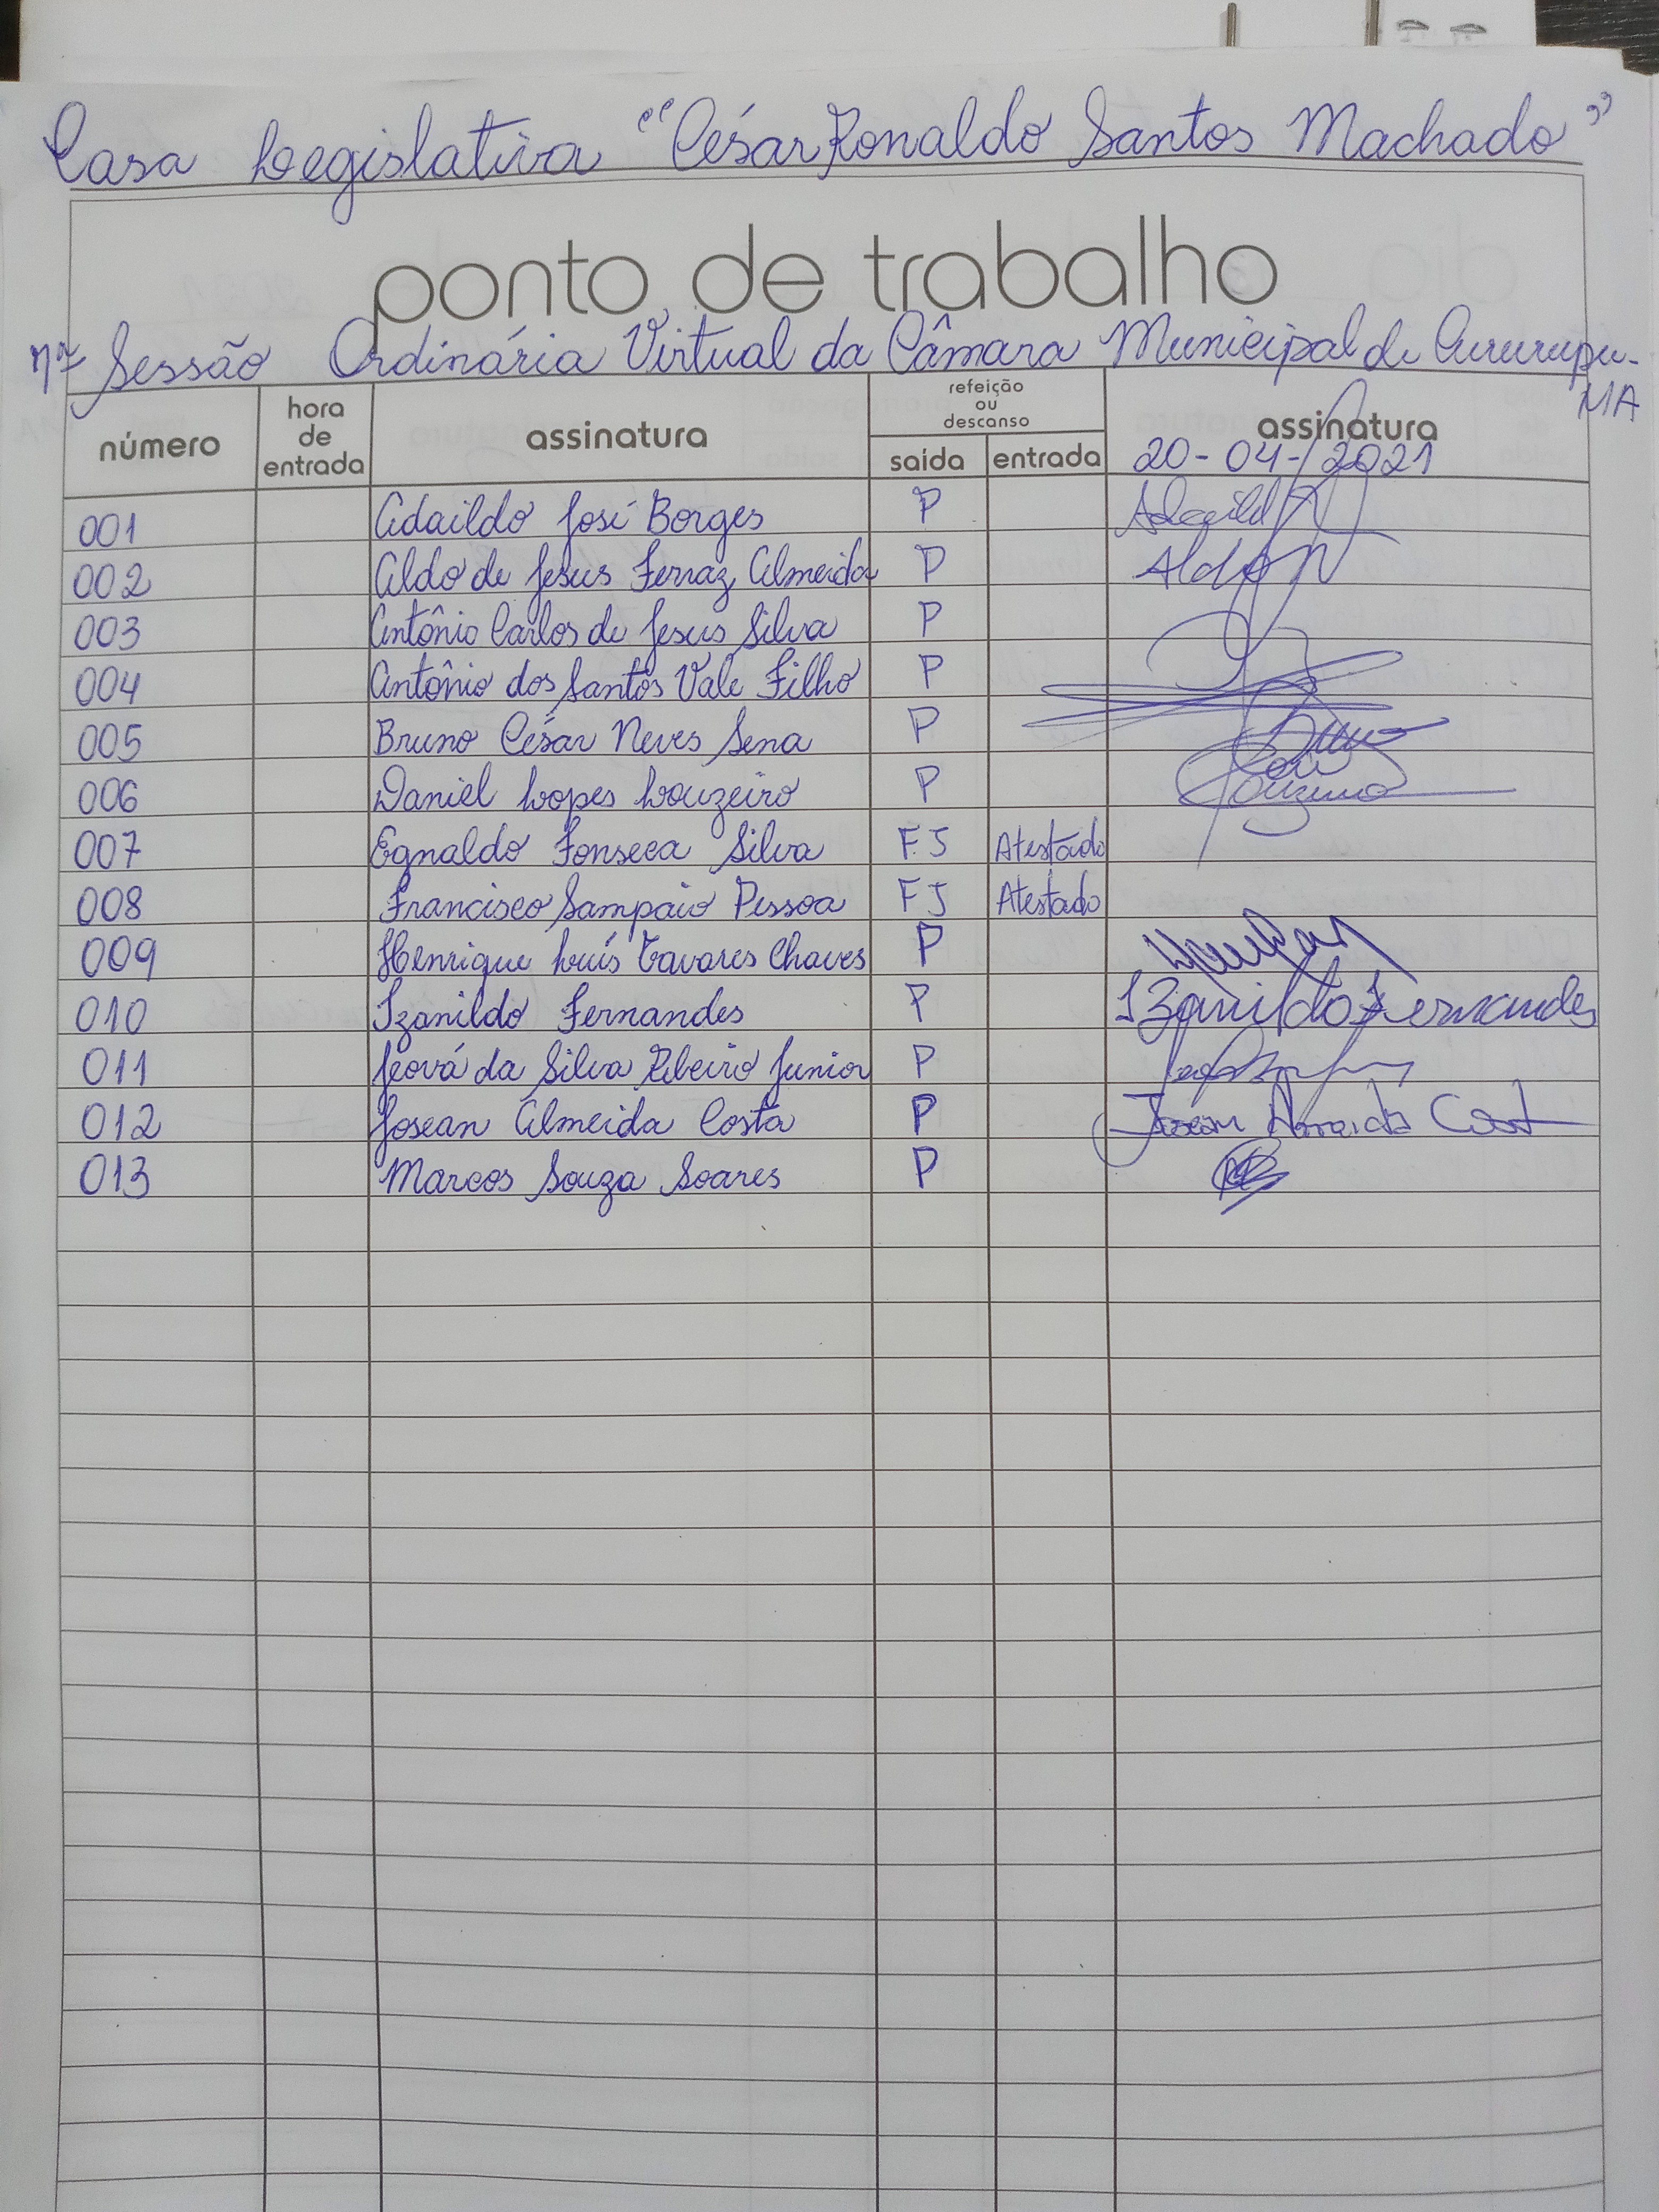 Casa Legislativa "César Ronaldo Santos Machado"
ponto de trabalho
7ª Sessão Ordinária Virtual da Câmara Municipal de Cururupu-
MA
número hora de entrada assinatura refeição ou descanso saída entrada assinatura
20-04-2021
001 Adaildo José Borges P Adaild
002 Aldo de Jesus Ferraz Almeida P Aldo
003 Antônio Carlos de Jesus Silva P
004 Antônio dos Santos Vale Filho P
005 Bruno César Neves Sena P Bruno
006 Daniel Lopes Louzeiro P Louzeiro
007 Egnaldo Fonseca Silva FJ Atestado
008 Francisco Sampaio Pessoa FJ Atestado
009 Henrique Luís Tavares Chaves P
010 Izanildo Fernandes P Izanildo Fernandes
011 Jeová da Silva Ribeiro Junior P
012 Josean Almeida Costa P Josean Almeida Cost
013 Marcos Souza Soares P